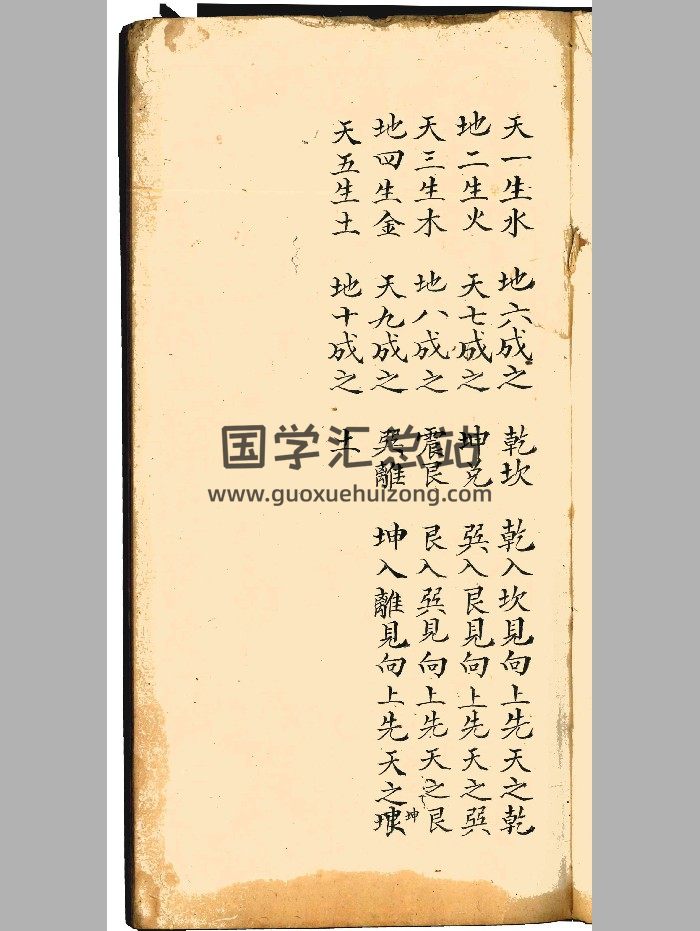 天一生水 地六成之 乾坎 乾入坎見向上先天之乾
地二生火 天七成之 坤兌 巽入艮見向上先天之巽
天三生木 地八成之 震艮 艮入巽見向上先天之艮
地四生金 天九成之 巽離 坤入離見向上先天之坤
坤
天五生土 地十成之 土
国学汇总站
www.guoxuehuizong.com